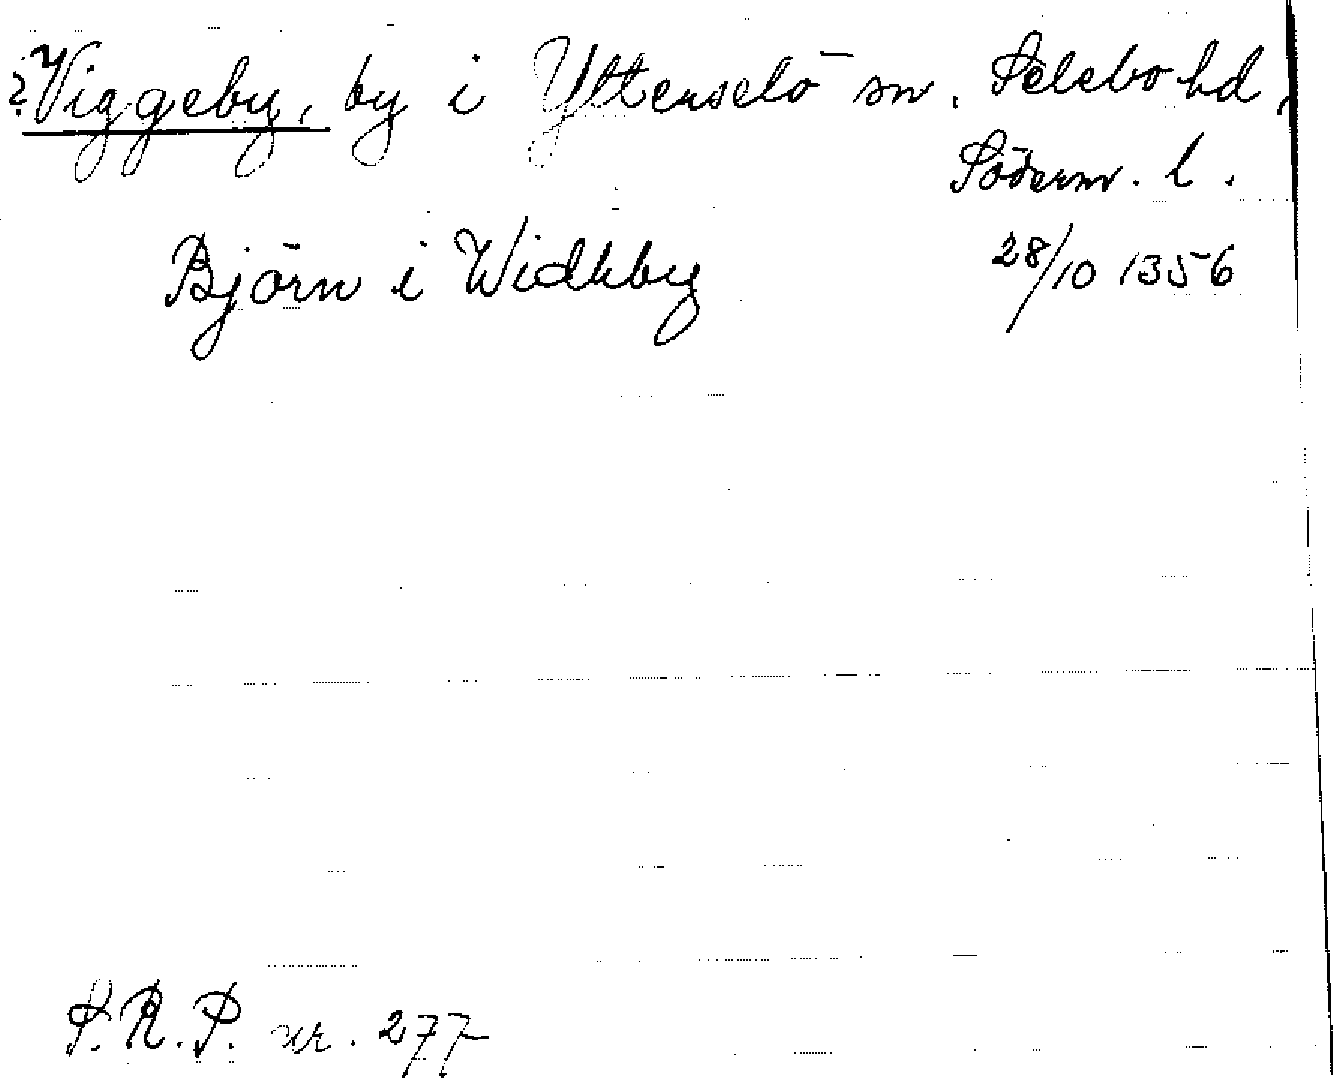 ? Viggeby, by i Ytterselö sn. Selebo hd,
Söderm. l.
Björn i Widhby 28/10 1356
S.R.P. nr. 277